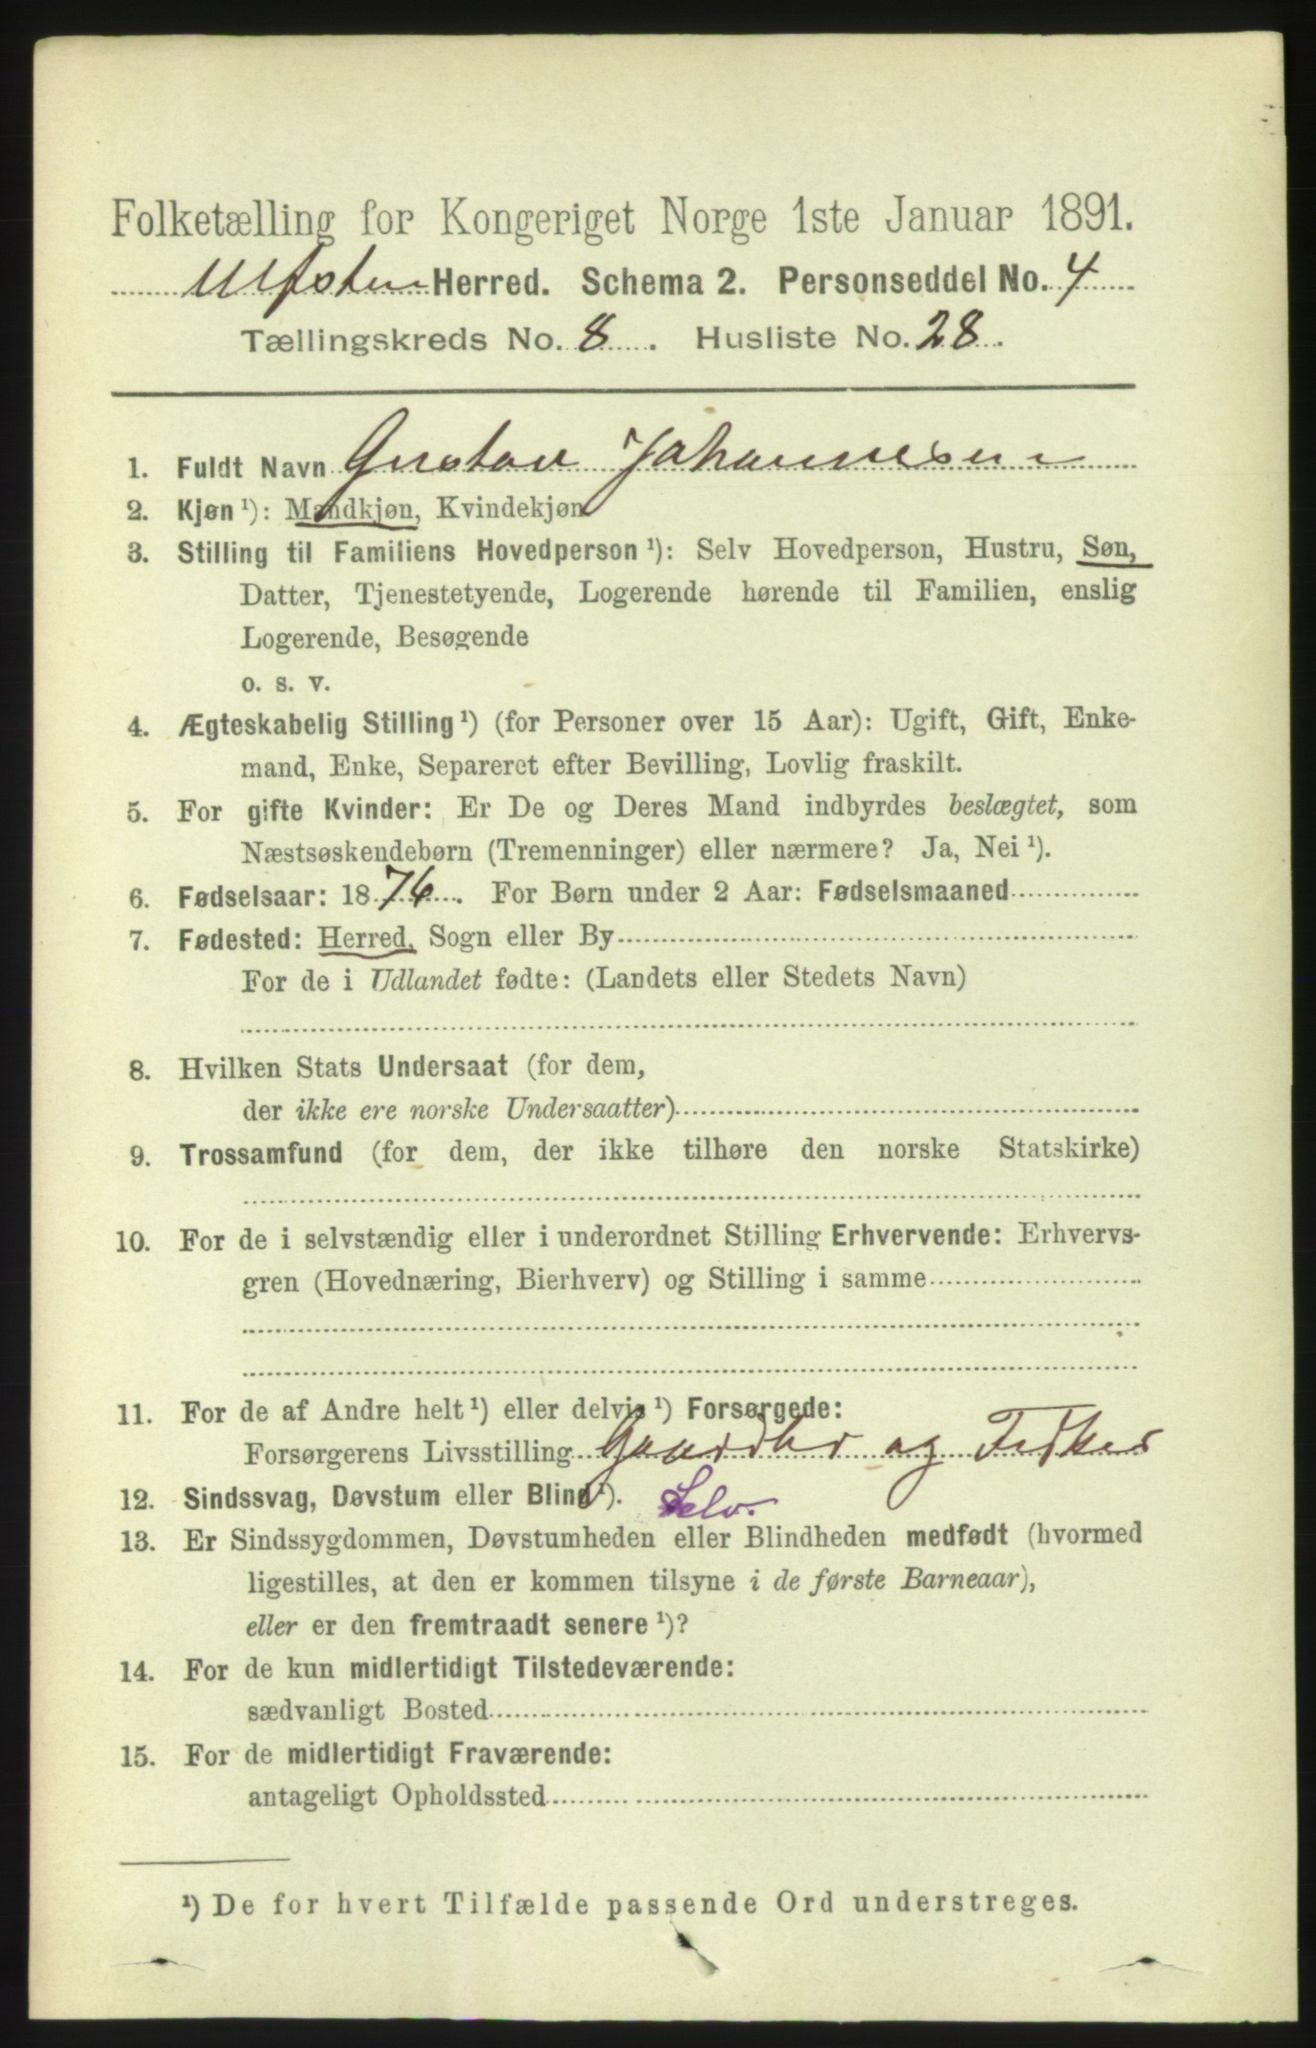 Folketælling for Kongeriget Norge 1ste Januar 1891.
Ulfsten Herred. Schema 2. Personseddel No. 4
Tællingskreds No. 8. Husliste No. 28.
1. Fuldt Navn Gustav Johannesen
2. Kjøn¹): Mandkjøn, Kvindekjøn
3. Stilling til Familiens Hovedperson¹): Selv Hovedperson, Hustru, Søn,
Datter, Tjenestetyende, Logerende hørende til Familien, enslig
Logerende, Besøgende
o. s. v.
4. Ægteskabelig Stilling¹) (for Personer over 15 Aar): Ugift, Gift, Enke-
mand, Enke, Separeret efter Bevilling, Lovlig fraskilt.
5. For gifte Kvinder: Er De og Deres Mand indbyrdes beslægtet, som
Næstsøskendebørn (Tremenninger) eller nærmere? Ja, Nei¹).
6. Fødselsaar: 1876. For Børn under 2 Aar: Fødselsmaaned
7. Fødested: Herred, Sogn eller By
For de i Udlandet fødte: (Landets eller Stedets Navn)
8. Hvilken Stats Undersaat (for dem,
der ikke ere norske Undersaatter)
9. Trossamfund (for dem, der ikke tilhøre den norske Statskirke)
10. For de i selvstændig eller i underordnet Stilling Erhvervende: Erhvervs-
gren (Hovednæring, Bierhverv) og Stilling i samme
11. For de af Andre helt¹) eller delvis¹) Forsørgede:
Forsørgerens Livsstilling Gaardbr og Fisker
12. Sindssvag, Døvstum eller Blind¹). Selv.
13. Er Sindssygdommen, Døvstumheden eller Blindheden medfødt (hvormed
ligestilles, at den er kommen tilsyne i de første Barneaar),
eller er den fremtraadt senere¹)?
14. For de kun midlertidigt Tilstedeværende:
sædvanligt Bosted
15. For de midlertidigt Fraværende:
antageligt Opholdssted
¹) De for hvert Tilfælde passende Ord understreges.